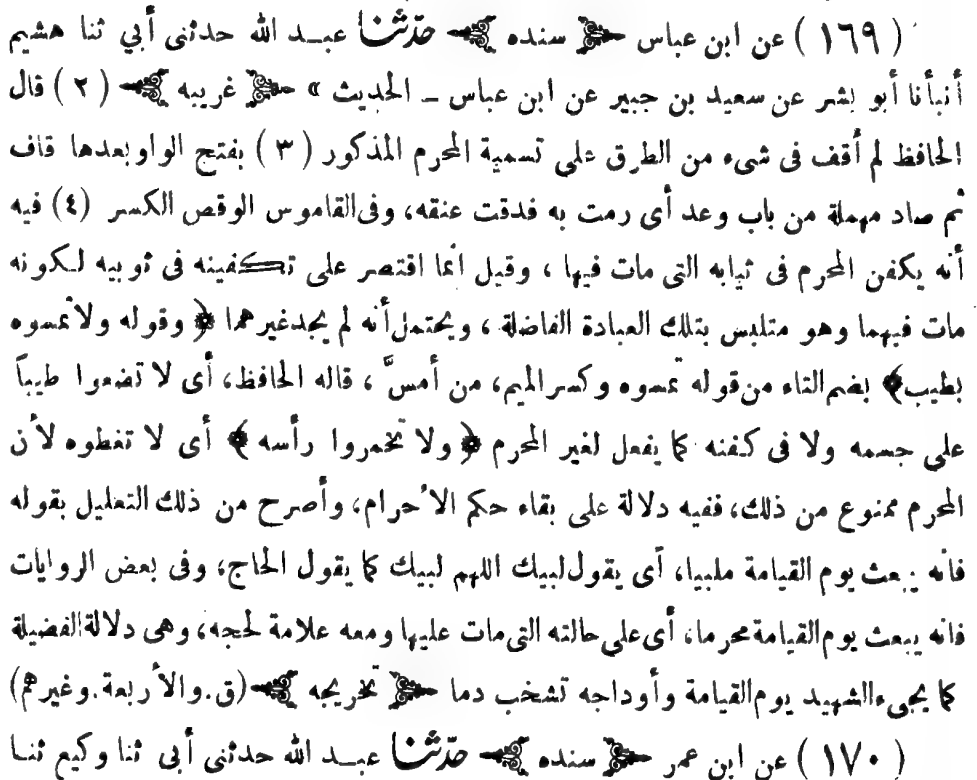 ( ١٦٩ ) عن ابن عباس ﴿ سنده ﴾ حدثنا عبـد الله حدثنى أبي ثنا هشيم
أنبأنا أبو بشر عن سعيد بن جبير عن ابن عباس ــ الحديث » ﴿ غريبه ﴾ ( ٢ ) قال
الحافظ لم أقف فى شىء من الطرق على تسمية المحرم المذكور ( ٣ ) بفتح الواو بعدها قاف
ثم صاد مهملة من باب وعد أى رمت به فدقت عنقه، وفى القاموس الوقص الكسر (٤) فيه
أنه يكفن المحرم فى ثيابه التى مات فيها ، وقيل انما اقتصر على تكفينه فى ثوبيه لكونه
مات فيهما وهو متلبس بتلك العبادة الفاضلة ، ويحتمل أنه لم يجد غيرهما ﴿ وقوله ولا تمسوه
بطيب ﴾ بضم التاء من قوله تمسوه وكسر الميم، من أمسَّ ، قاله الحافظ، أى لا تضعوا طيباً
على جسمه ولا فى كفنه كما يفعل لغير المحرم ﴿ ولا تخمروا رأسه ﴾ أى لا تغطوه لأن
المحرم ممنوع من ذلك، ففيه دلالة على بقاء حكم الاحرام، وأصرح من ذلك التعليل بقوله
فانه يبعث يوم القيامة ملبيا، أى يقول لبيك اللهم لبيك كما يقول الحاج، وفى بعض الروايات
فانه يبعث يوم القيامة محرما، أى على حالته التى مات عليها ومعه علامة لحجه، وهى دلالة الفضيلة
كما يجىء الشهيد يوم القيامة وأوداجه تشخب دما ﴿ تخريجه ﴾ (ق. والأربعة. وغيرهم)
( ١٧٠ ) عن ابن عمر ﴿ سنده ﴾ حدثنا عبـد الله حدثنى أبى ثنا وكيع ثنـا